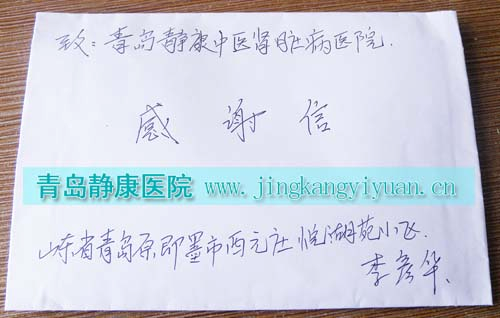 致：青岛静康中医肾脏病医院.
感谢信
青岛静康医院 www.jingkangyiyuan.cn
山东省青岛原即墨市西元庄悦湖苑小飞.
李彦华.